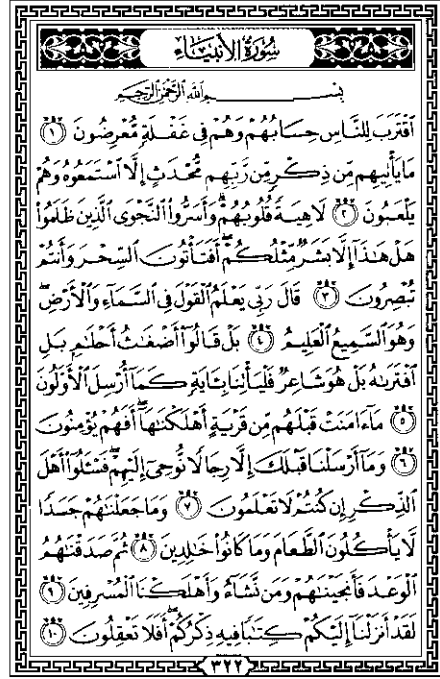 سُورَةُ الأَنبِيَاءِ
بِسْمِ اللَّهِ الرَّحْمَٰنِ الرَّحِيمِ
ٱقْتَرَبَ لِلنَّاسِ حِسَابُهُمْ وَهُمْ فِى غَفْلَةٍ مُّعْرِضُونَ ١
مَا يَأْتِيهِم مِّن ذِكْرٍ مِّن رَّبِّهِم مُّحْدَثٍ إِلَّا ٱسْتَمَعُوهُ وَهُمْ
يَلْعَبُونَ ٢ لَاهِيَةً قُلُوبُهُمْ ۗ وَأَسَرُّوا۟ ٱلنَّجْوَى ٱلَّذِينَ ظَلَمُوا۟
هَلْ هَٰذَآ إِلَّا بَشَرٌ مِّثْلُكُمْ ۖ أَفَتَأْتُونَ ٱلسِّحْرَ وَأَنتُمْ
تُبْصِرُونَ ٣ قَالَ رَبِّى يَعْلَمُ ٱلْقَوْلَ فِى ٱلسَّمَآءِ وَٱلْأَرْضِ ۖ
وَهُوَ ٱلسَّمِيعُ ٱلْعَلِيمُ ٤ بَلْ قَالُوٓا۟ أَضْغَٰثُ أَحْلَٰمٍۭ بَلِ
ٱفْتَرَىٰهُ بَلْ هُوَ شَاعِرٌ فَلْيَأْتِنَا بِـَٔايَةٍ كَمَآ أُرْسِلَ ٱلْأَوَّلُونَ
٥ مَآ ءَامَنَتْ قَبْلَهُم مِّن قَرْيَةٍ أَهْلَكْنَٰهَآ ۖ أَفَهُمْ يُؤْمِنُونَ
٦ وَمَآ أَرْسَلْنَا قَبْلَكَ إِلَّا رِجَالًا نُّوحِىٓ إِلَيْهِمْ ۖ فَسْـَٔلُوٓا۟ أَهْلَ
ٱلذِّكْرِ إِن كُنتُمْ لَا تَعْلَمُونَ ٧ وَمَا جَعَلْنَٰهُمْ جَسَدًا
لَّا يَأْكُلُونَ ٱلطَّعَامَ وَمَا كَانُوا۟ خَٰلِدِينَ ٨ ثُمَّ صَدَقْنَٰهُمُ
ٱلْوَعْدَ فَأَنجَيْنَٰهُمْ وَمَن نَّشَآءُ وَأَهْلَكْنَا ٱلْمُسْرِفِينَ ٩
لَقَدْ أَنزَلْنَآ إِلَيْكُمْ كِتَٰبًا فِيهِ ذِكْرُكُمْ ۖ أَفَلَا تَعْقِلُونَ ١٠
٣٢٢